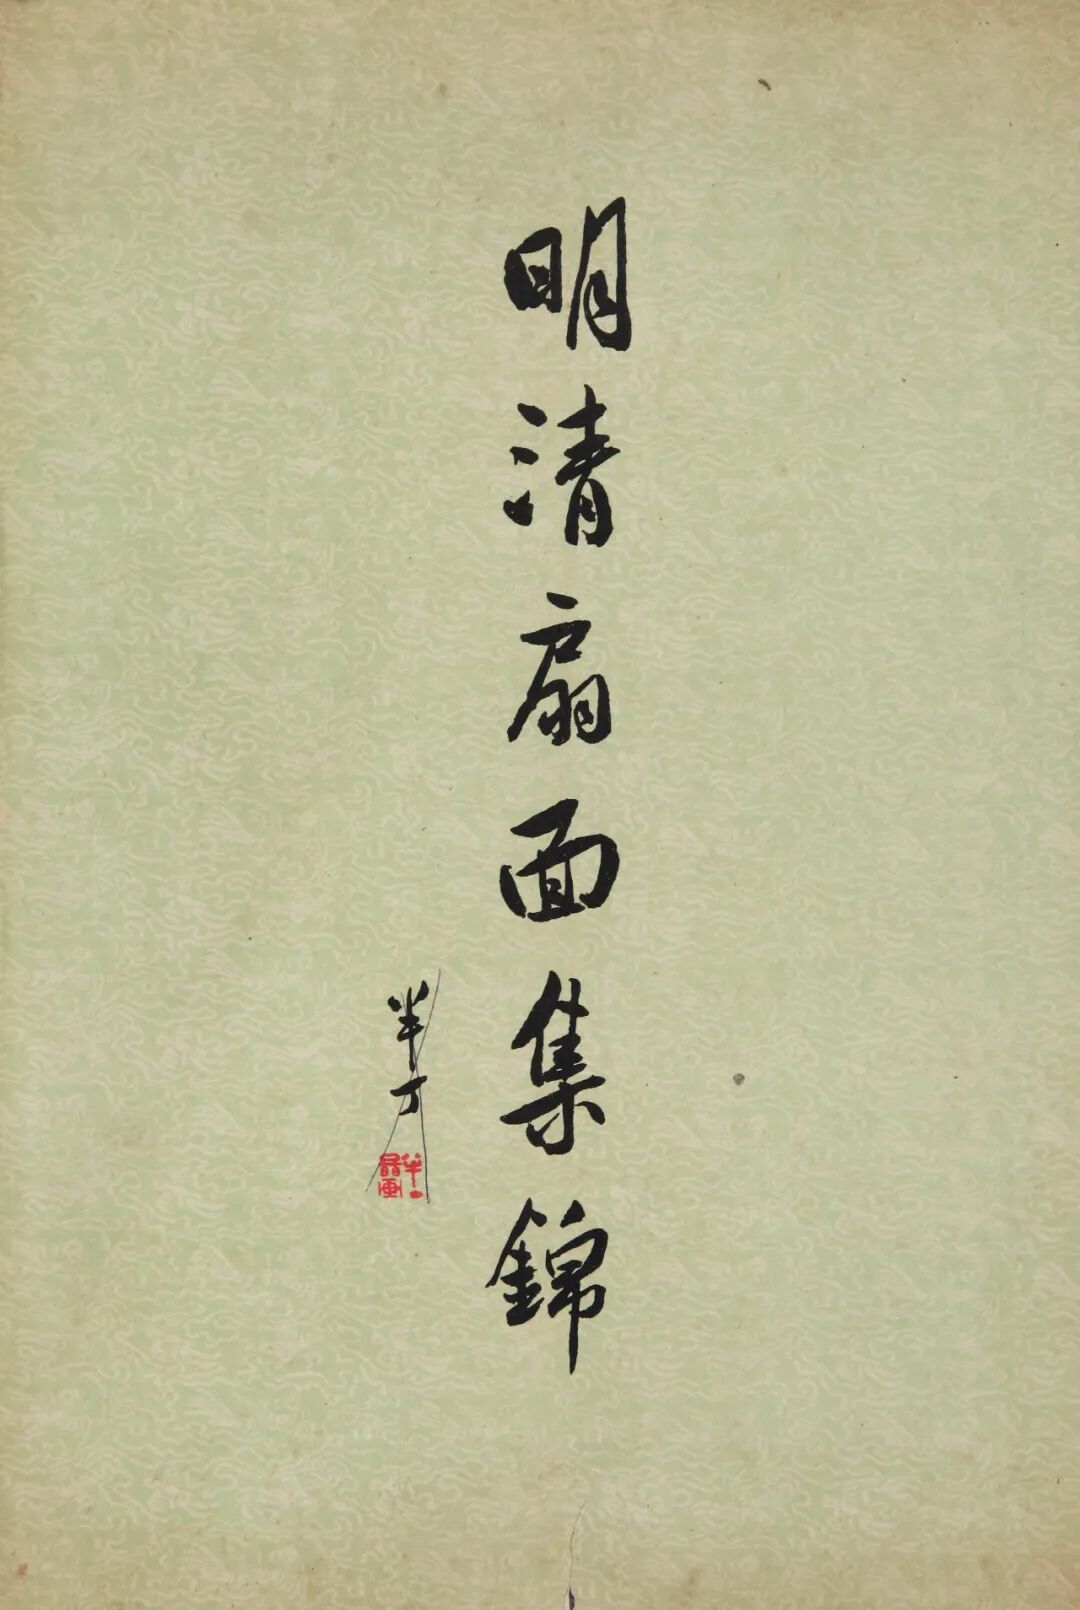 明清扇面集錦
半丁